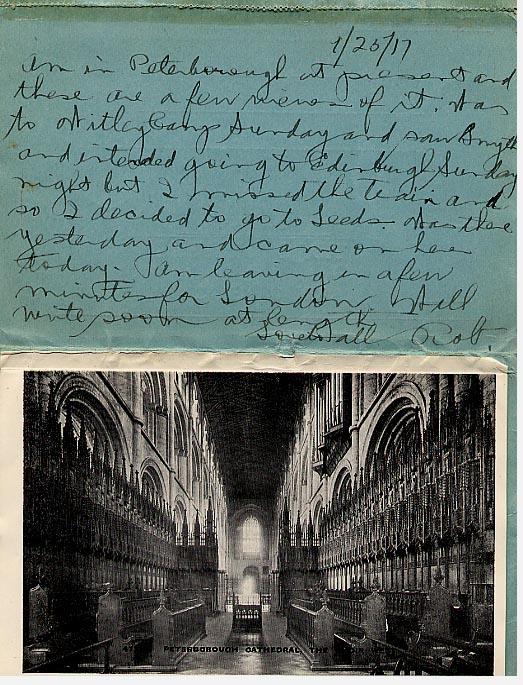 1/25/17
Am in Peterborough at present and
these are a few views of it. Was
to Witley Camp Sunday and saw Smyth
and intended going to Edinburgh Sunday
night but I missed the train and
so I decided to go to Leeds. Was there
yesterday and came on here
today. I am leaving in a few
minutes for London. Will
write soon at length.
Love to all Rob.
PETERBOROUGH CATHEDRAL, THE CHOIR WEST